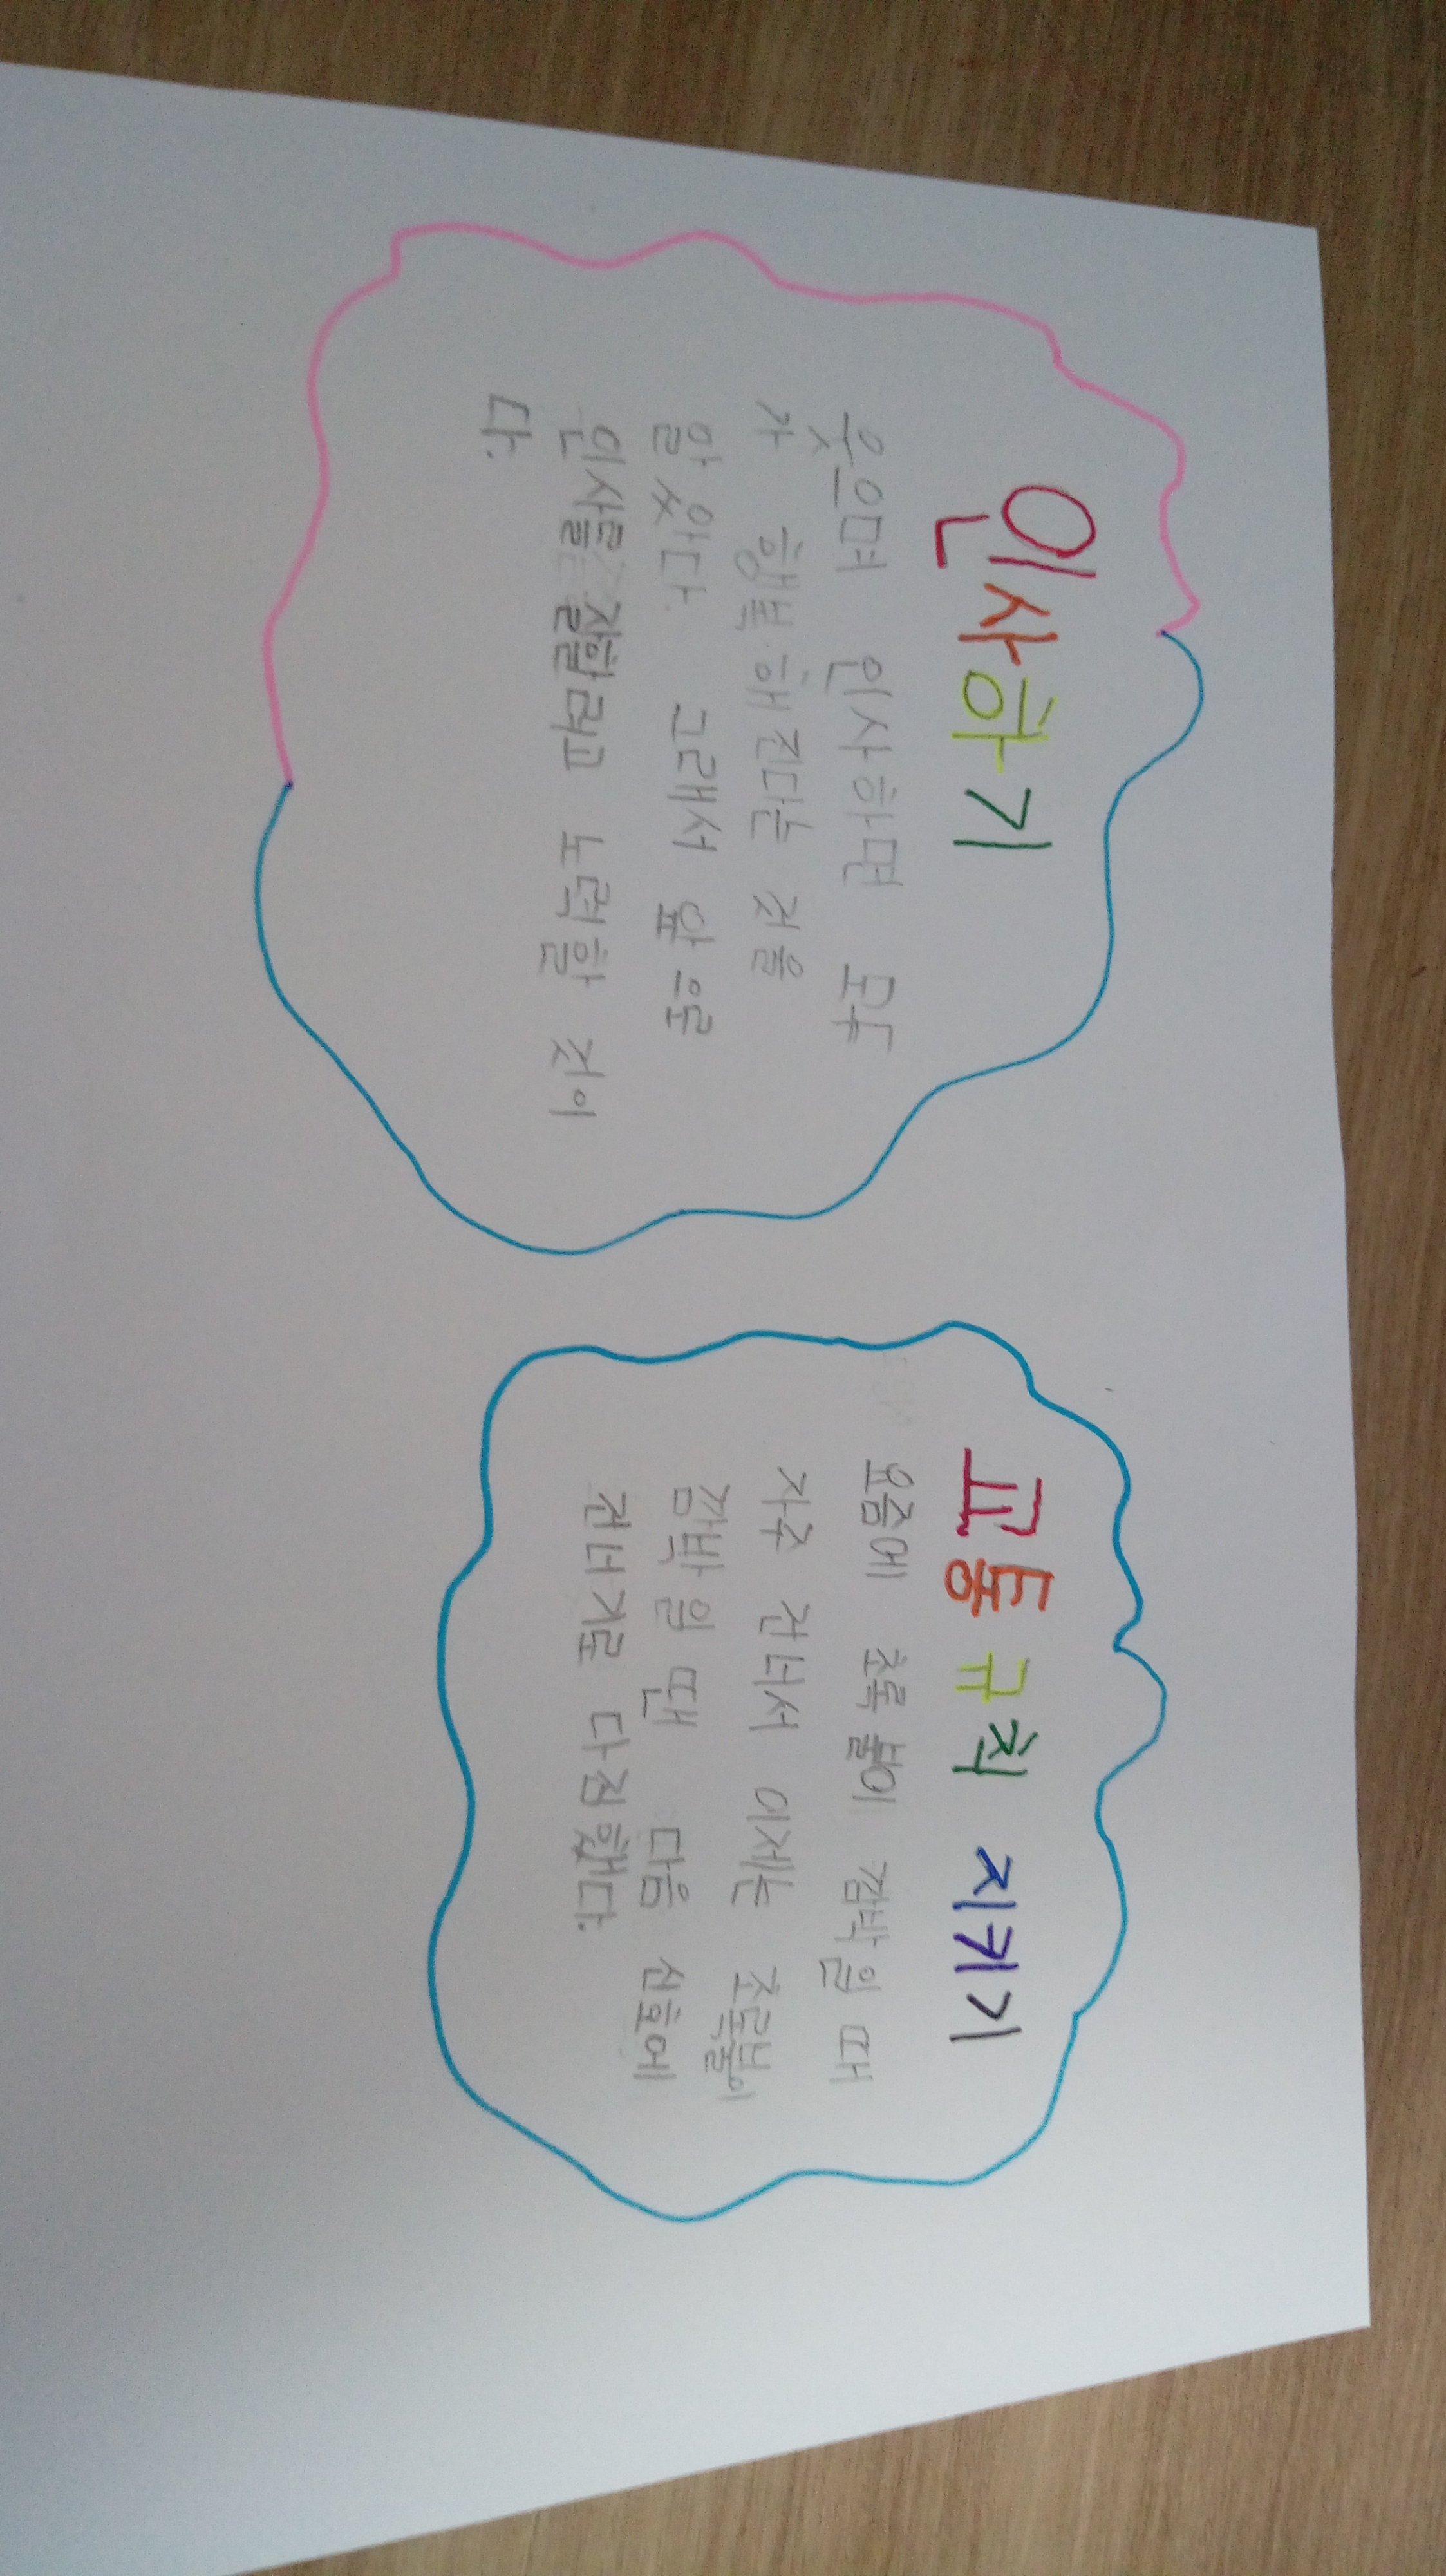 인사하기
웃으며 인사하면 모두
가 행복해진다는 것을
알았다. 그래서 앞으로
인사를 잘할려고 노력할 것이
다.
교통규칙 지키기
요즘에 초록불이 깜박일 때
자주 건너서 이제는 초록불이
깜박일 땐 다음 신호에
건너기로 다짐했다.